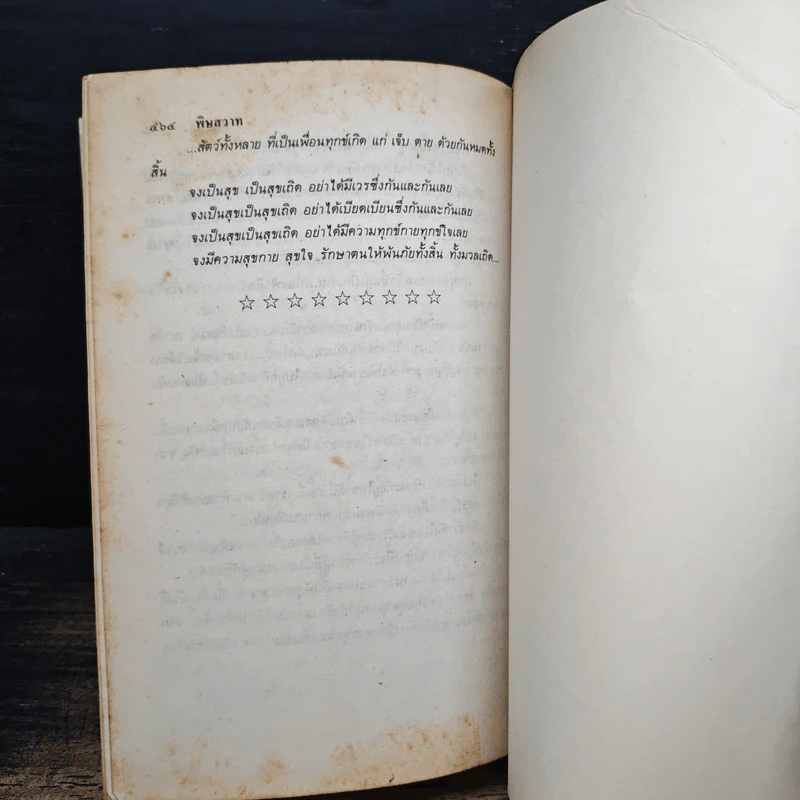 ๔๖๔ พิษสวาท
...สัตว์ทั้งหลาย ที่เป็นเพื่อนทุกข์เกิด แก่ เจ็บ ตาย ด้วยกันหมดทั้ง
สิ้น
จงเป็นสุข เป็นสุขเถิด อย่าได้มีเวรซึ่งกันและกันเลย
จงเป็นสุขเป็นสุขเถิด อย่าได้เบียดเบียนซึ่งกันและกันเลย
จงเป็นสุขเป็นสุขเถิด อย่าได้มีความทุกข์กายทุกข์ใจเลย
จงมีความสุขกาย สุขใจ รักษาตนให้พ้นภัยทั้งสิ้น ทั้งมวลเถิด...
☆ ☆ ☆ ☆ ☆ ☆ ☆ ☆ ☆